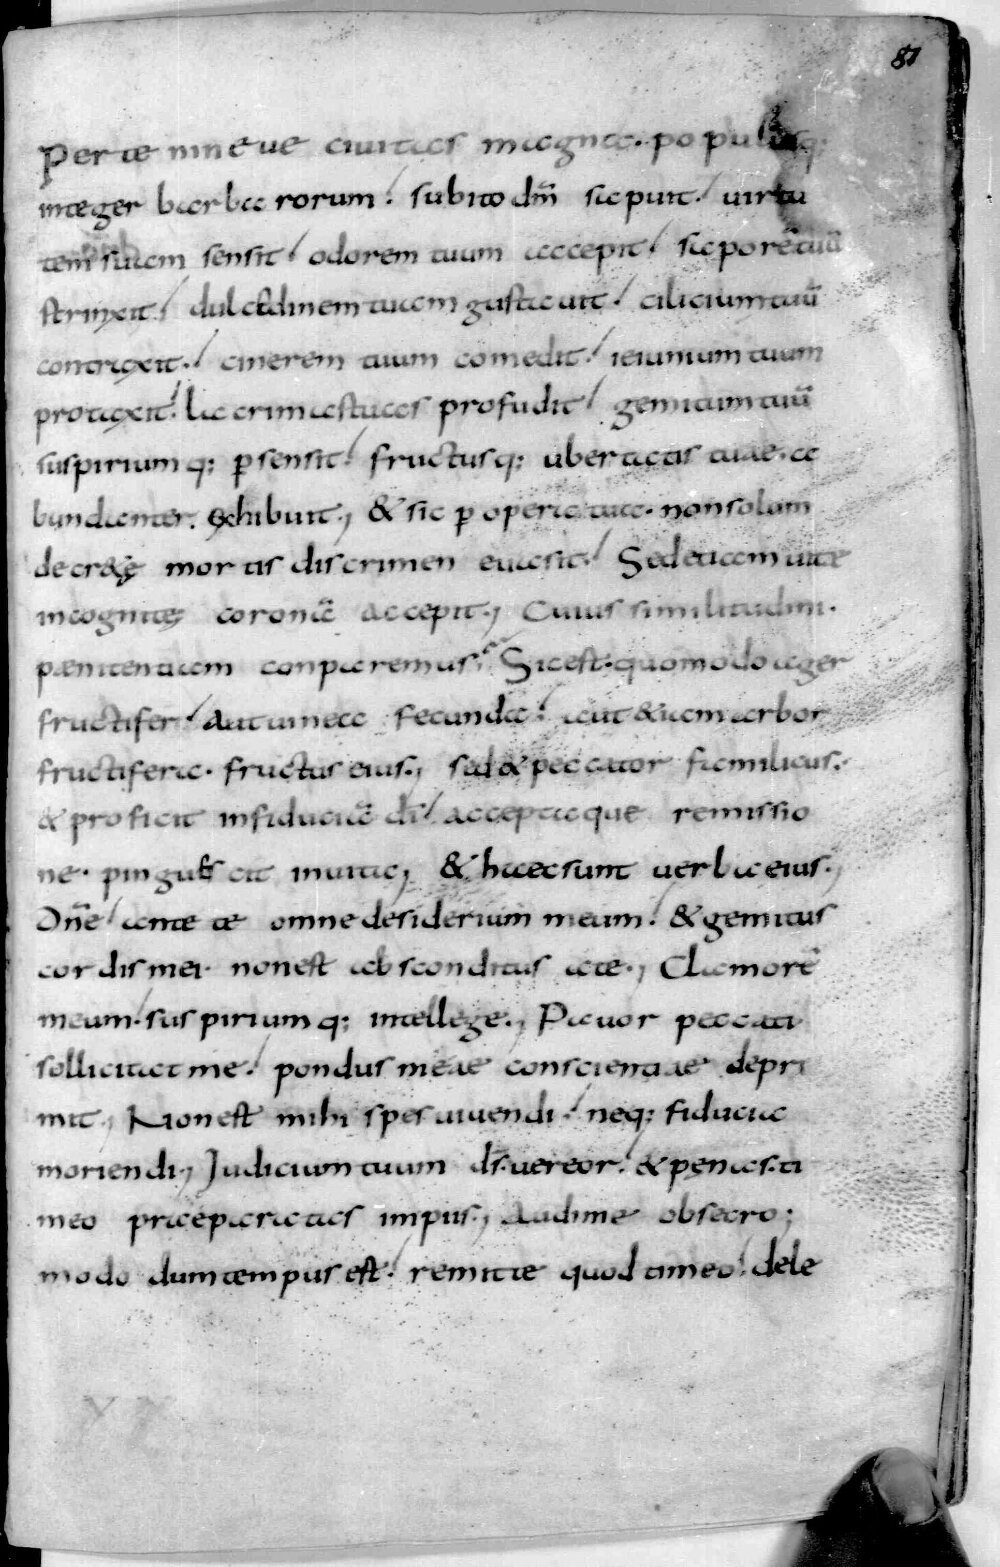 81
Per te nineue ciuitas magna. populusq;
integer barbarorum. subito dnm̄ sapuit. uirtu
tem suam sensit. odorem tuum accepit. saporē tuū
strinxit. dulcedinem tuam gustauit. cilicium tuū
contraxit. cinerem tuum comedit. ieiunium tuum
protaxit. lacrimas tuas profudit. gemitum tuū
suspiriumq; ꝑsensit. fructusq; ubertatis tuae. a
bundanter. exhibuit; & sic ꝑ opera tua. non solum
decr&ę mortis discrimen euasit. Sed etiam uitę
incognitę coronā accepit; Cuius similitudini.
pænitentiam conparemus; Sic est. quomodo ager
fructifer. Aut uinea fecunda. aut &iam arbor
fructifera. fructus eius; sed & peccator familicus.
& proficit in fiducia dī acceptaque remissio
ne. pinguescit in uita; & haec sunt uerba eius;
Dn̄e ante te omne desiderium meum. & gemitus
cordis mei. non est absconditus a te; Clamorē
meum. suspiriumq; intellege; Pauor peccati
sollicitat me. pondus meae conscientiae depri
mit; Non est mihi spes uiuendi. neq; fiducia
moriendi; Judicium tuum dr̄. uereor. & pęnas. ti
meo praeparatas impiis; Audi me obsecro;
modo dum tempus est. remitte quod timeo. dele